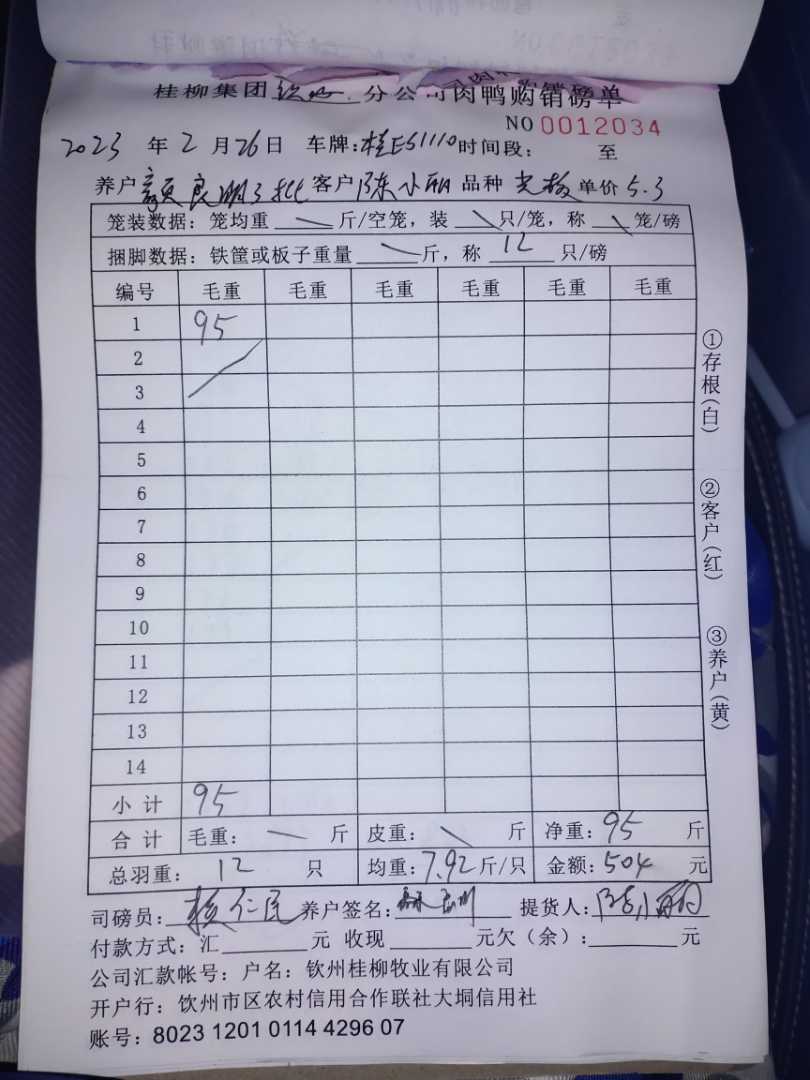 桂柳集团钦州分公司肉鸭购销磅单
NO 0012034
2023 年 2 月 26 日 车牌:桂E51110 时间段: 至
养户 颜良明3批 客户 陈小丽 品种 光板 单价 5.3
笼装数据: 笼均重 斤/空笼, 装 只/笼, 称 笼/磅
捆脚数据: 铁筐或板子重量 斤, 称 12 只/磅
编号 毛重 毛重 毛重 毛重 毛重 毛重
1 95
2
3
4
5
6
7
8
9
10
11
12
13
14
小计 95
合计 毛重: 斤 皮重: 斤 净重: 95 斤
总羽重: 12 只 均重: 7.92 斤/只 金额: 504 元
司磅员: 仁民 养户签名: 提货人: 陈小丽
付款方式: 汇 元 收现 元欠(余): 元
公司汇款帐号: 户名: 钦州桂柳牧业有限公司
开户行: 钦州市区农村信用合作联社大垌信用社
账号: 8023 1201 0114 4296 07
①存根(白)
②客户(红)
③养户(黄)